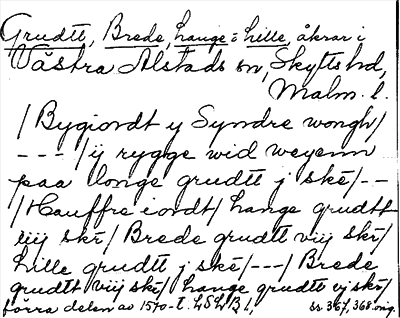 Grudtt, Brede, Lange = Lille, åkrar i
Västra Alstads sn, Skytts hd,
Malm. l.
/Bygiordt y Syndre wongh/
--- /ij rygge wid weyenn
paa longe grudtt j ske/--
/Hauffre iordt/ Lange grudtt
iiij ske/ Brede grudtt viij ske/
Lille grudtt j ske/---/ Brede
grudtt viij ske/ Lange grudtt vj ske/
förra delen av 1570-t. LSLB 1, ss. 367, 368. orig.